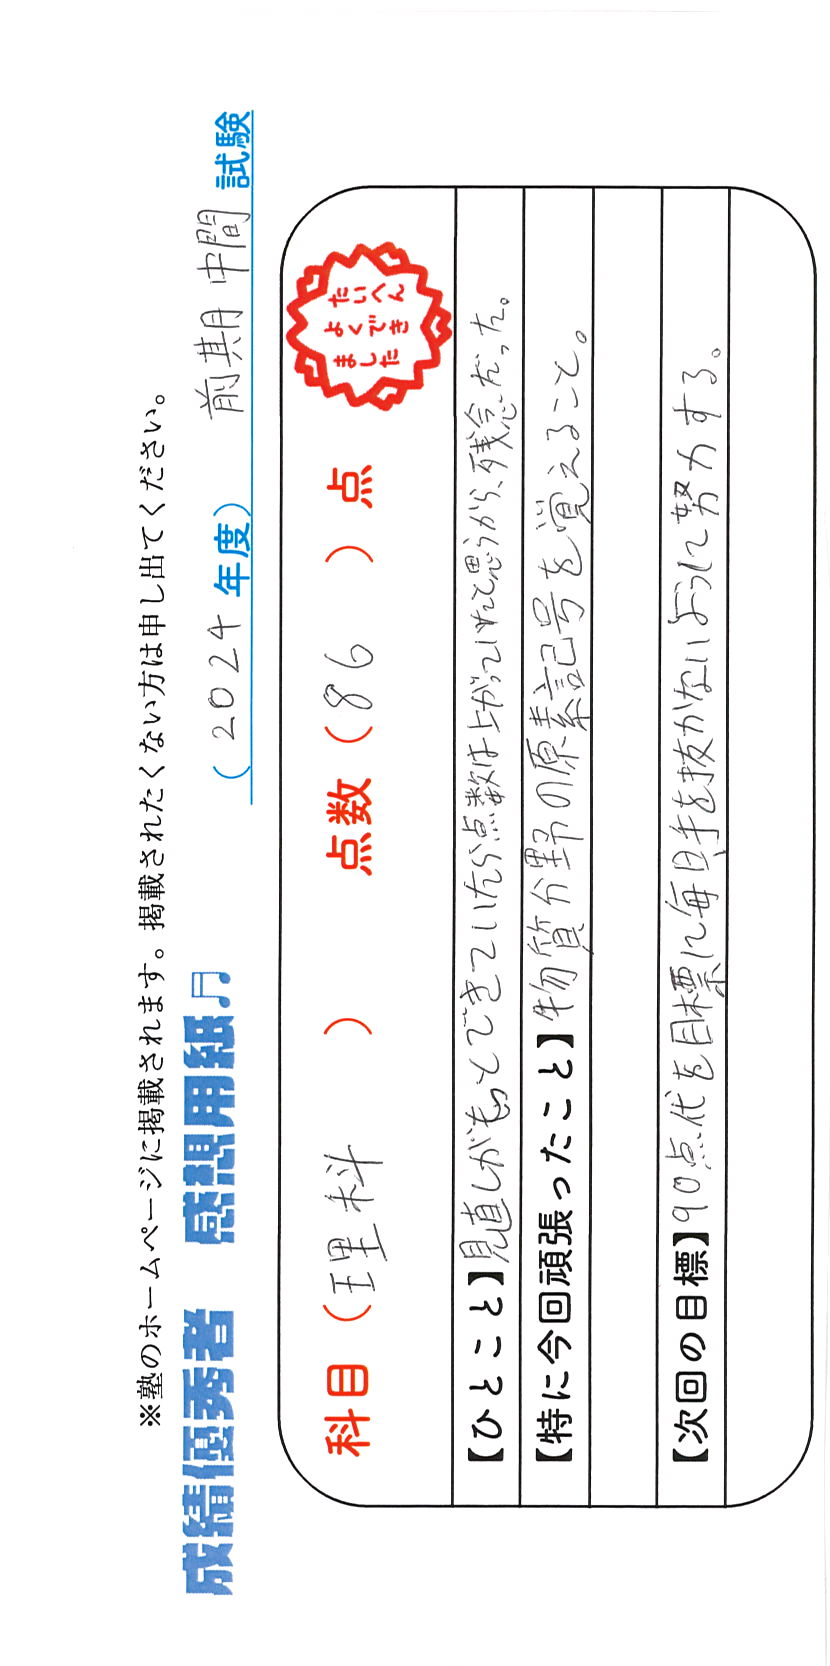 ※塾のホームページに掲載されます。掲載されたくない方は申し出てください。
成績優秀者 感想用紙♬ (2024年度) 前期中間 試験
科目(理科) 点数(86)点
たいへん
よくでき
ました
【ひとこと】見直しがもっとできていたら点数は上がっていたと思うから、残念だった。
【特に今回頑張ったこと】物質分野の原素記号を覚えること。
【次回の目標】90点代を目標に毎日手を抜かないように努力する。